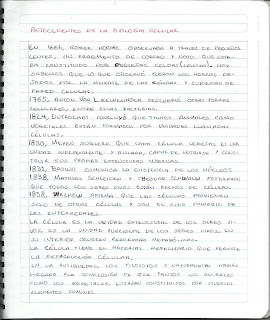 ANTECEDENTES DE LA BIOLOGÍA CELULAR
EN 1665, ROBERT HOOKE OBSERVABA A TRAVÉS DE PEQUEÑOS
LENTES, UN FRAGMENTO DE CORCHO Y NOTÓ QUE ESTA-
BA CONSTITUIDO POR PEQUEÑAS CELDAS (CELULAS). HOY
SABEMOS QUE LO QUE OBSERVÓ FUERON LOS HUECOS DE-
JADOS POR LA MUERTE DE LAS CÉLULAS Y CUBIERTAS DE
PARED CELULAR.
ANTON VAN LEEUWENHOEK DESCUBRIÓ OTRAS FORMAS
CELULARES, ENTRE ELLAS BACTERIAS.
1824, DUTROCHET CONCLUYÓ QUE TANTO ANIMALES COMO
VEGETALES ESTÁN FORMADOS POR UNIDADES LLAMADAS
CÉLULAS.
1830, MEYEN SUGIERE QUE CADA CÉLULA VEGETAL ES UNA
UNIDAD INDEPENDIENTE Y AISLADA, CAPAZ DE NUTRIRSE Y CONS-
TRUIR SUS PROPIAS ESTRUCTURAS INTERNAS.
1831, BROWN COMUNICA LA EXISTENCIA DE LOS NÚCLEOS
1838, MATTHIAS SCHLEIDEN Y THEODOR SCHWANN POSTULARON
QUE TODOS LOS SERES VIVOS ESTÁN HECHOS DE CÉLULAS.
1858, VIRCHOW AFIRMA QUE LAS CÉLULAS PROVIENEN
SOLO DE OTRAS CÉLULAS Y SON EL SITIO PRIMARIO DE
LAS ENFERMEDADES.
LA CÉLULA ES LA UNIDAD ESTRUCTURAL DE LOS SERES VI-
VOS, ES LA UNIDAD FUNCIONAL DE LOS SERES VIVOS, EN
SU INTERIOR OCURREN REACCIONES METABÓLICAS.
LA CÉLULA TIENE EL MATERIAL HEREDITARIO QUE PERMITE
LA REPRODUCCIÓN CELULAR.
EN LA ANTIGÜEDAD, LOS FILÓSOFOS Y NATURALISTAS HABÍAN
LLEGADO A LA CONCLUSIÓN DE QUE TANTO LOS ANIMALES
COMO LOS VEGETALES, ESTABAN CONSTITUIDOS POR DIVERSOS
ELEMENTOS COMUNES